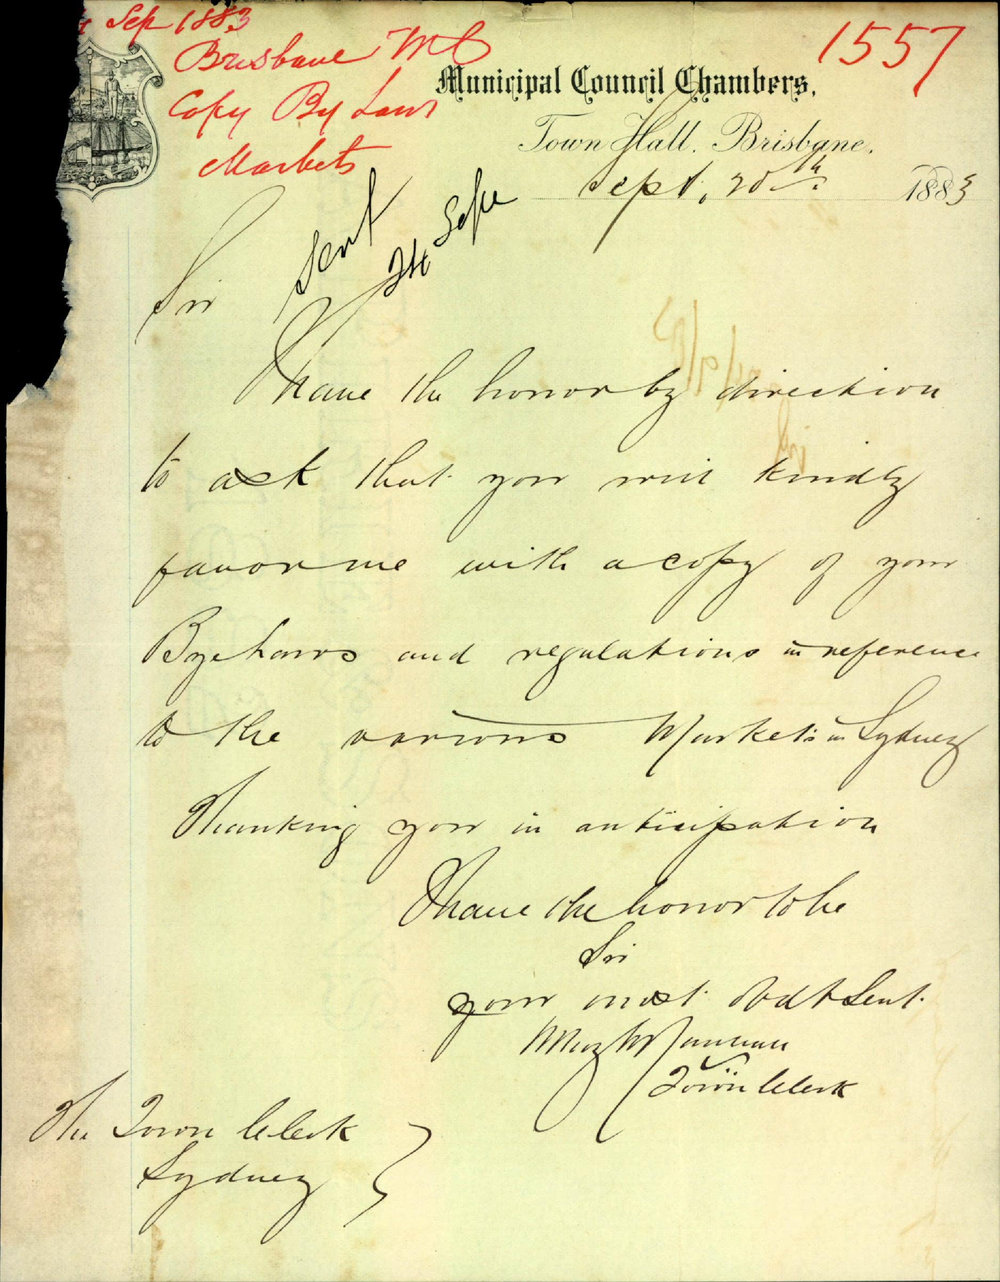 Sep 1883
Brisbane M C
Copy By Laws
Markets
1557
Municipal Council Chambers,
Town Hall, Brisbane,
Sept. 20th 1883
Sent
24 Sepr
Sir
I have the honor by direction
to ask that you will kindly
favor me with a copy of your
Bye Laws and regulations in reference
to the various Markets in Sydney
Thanking you in anticipation
I have the honor to be
Sir
your most Obdt Servt.
Town Clerk
The Town Clerk
Sydney